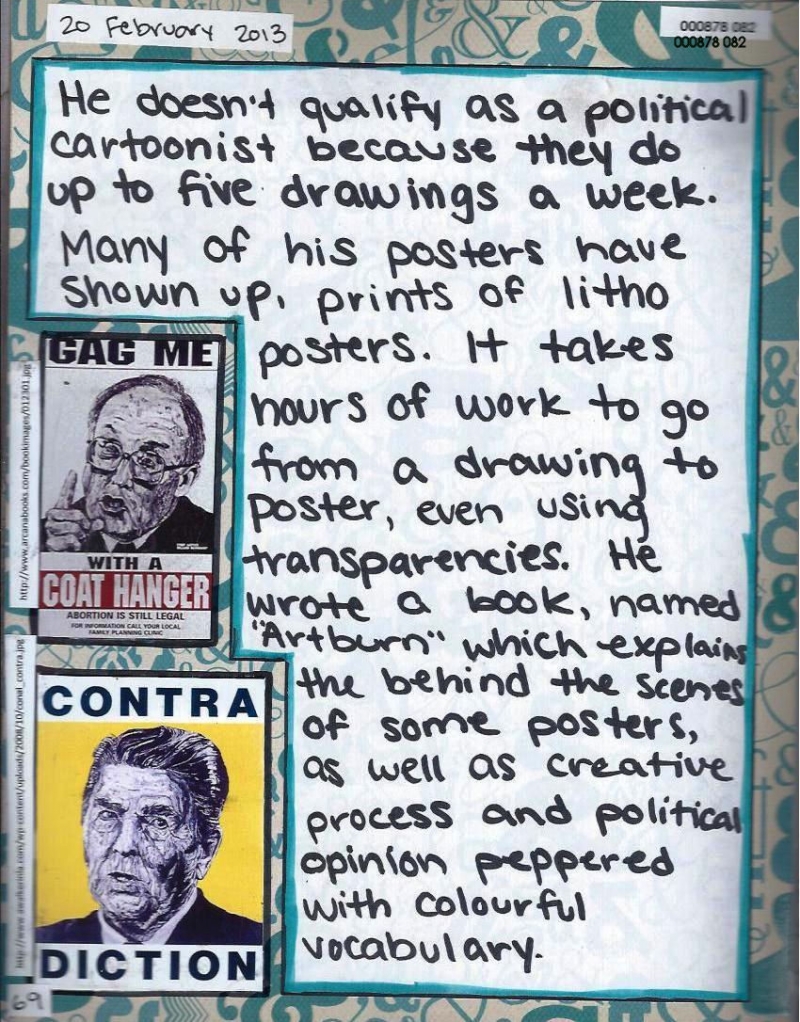 20 February 2013
000878 082
000878 082
He doesn't qualify as a political
cartoonist because they do
up to five drawings a week.
Many of his posters have
shown up, prints of litho
posters. It takes
hours of work to go
from a drawing to
poster, even using
transparencies. He
wrote a book, named
"Artburn" which explains
the behind the scenes
of some posters,
as well as creative
process and political
opinion peppered
with colourful
vocabulary.
http://www.arcanabooks.com/bookimages/012301.jpg
GAG ME
WITH A
COAT HANGER
ABORTION IS STILL LEGAL
FOR INFORMATION CALL YOUR LOCAL
FAMILY PLANNING CLINIC
CONTRA
DICTION
69